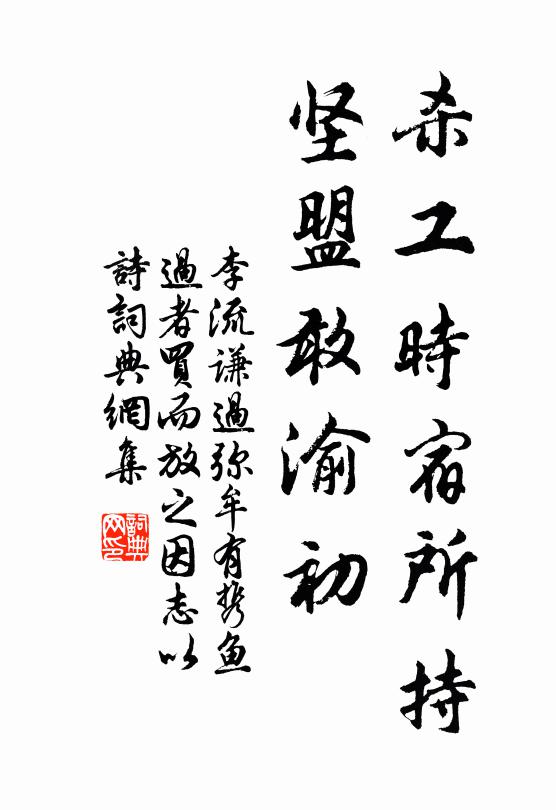 杀工時宿所持
坚盟敢渝初
李流谦過弥牟有携鱼
過者買而放之因志以
詩詞典網集
詞典网印